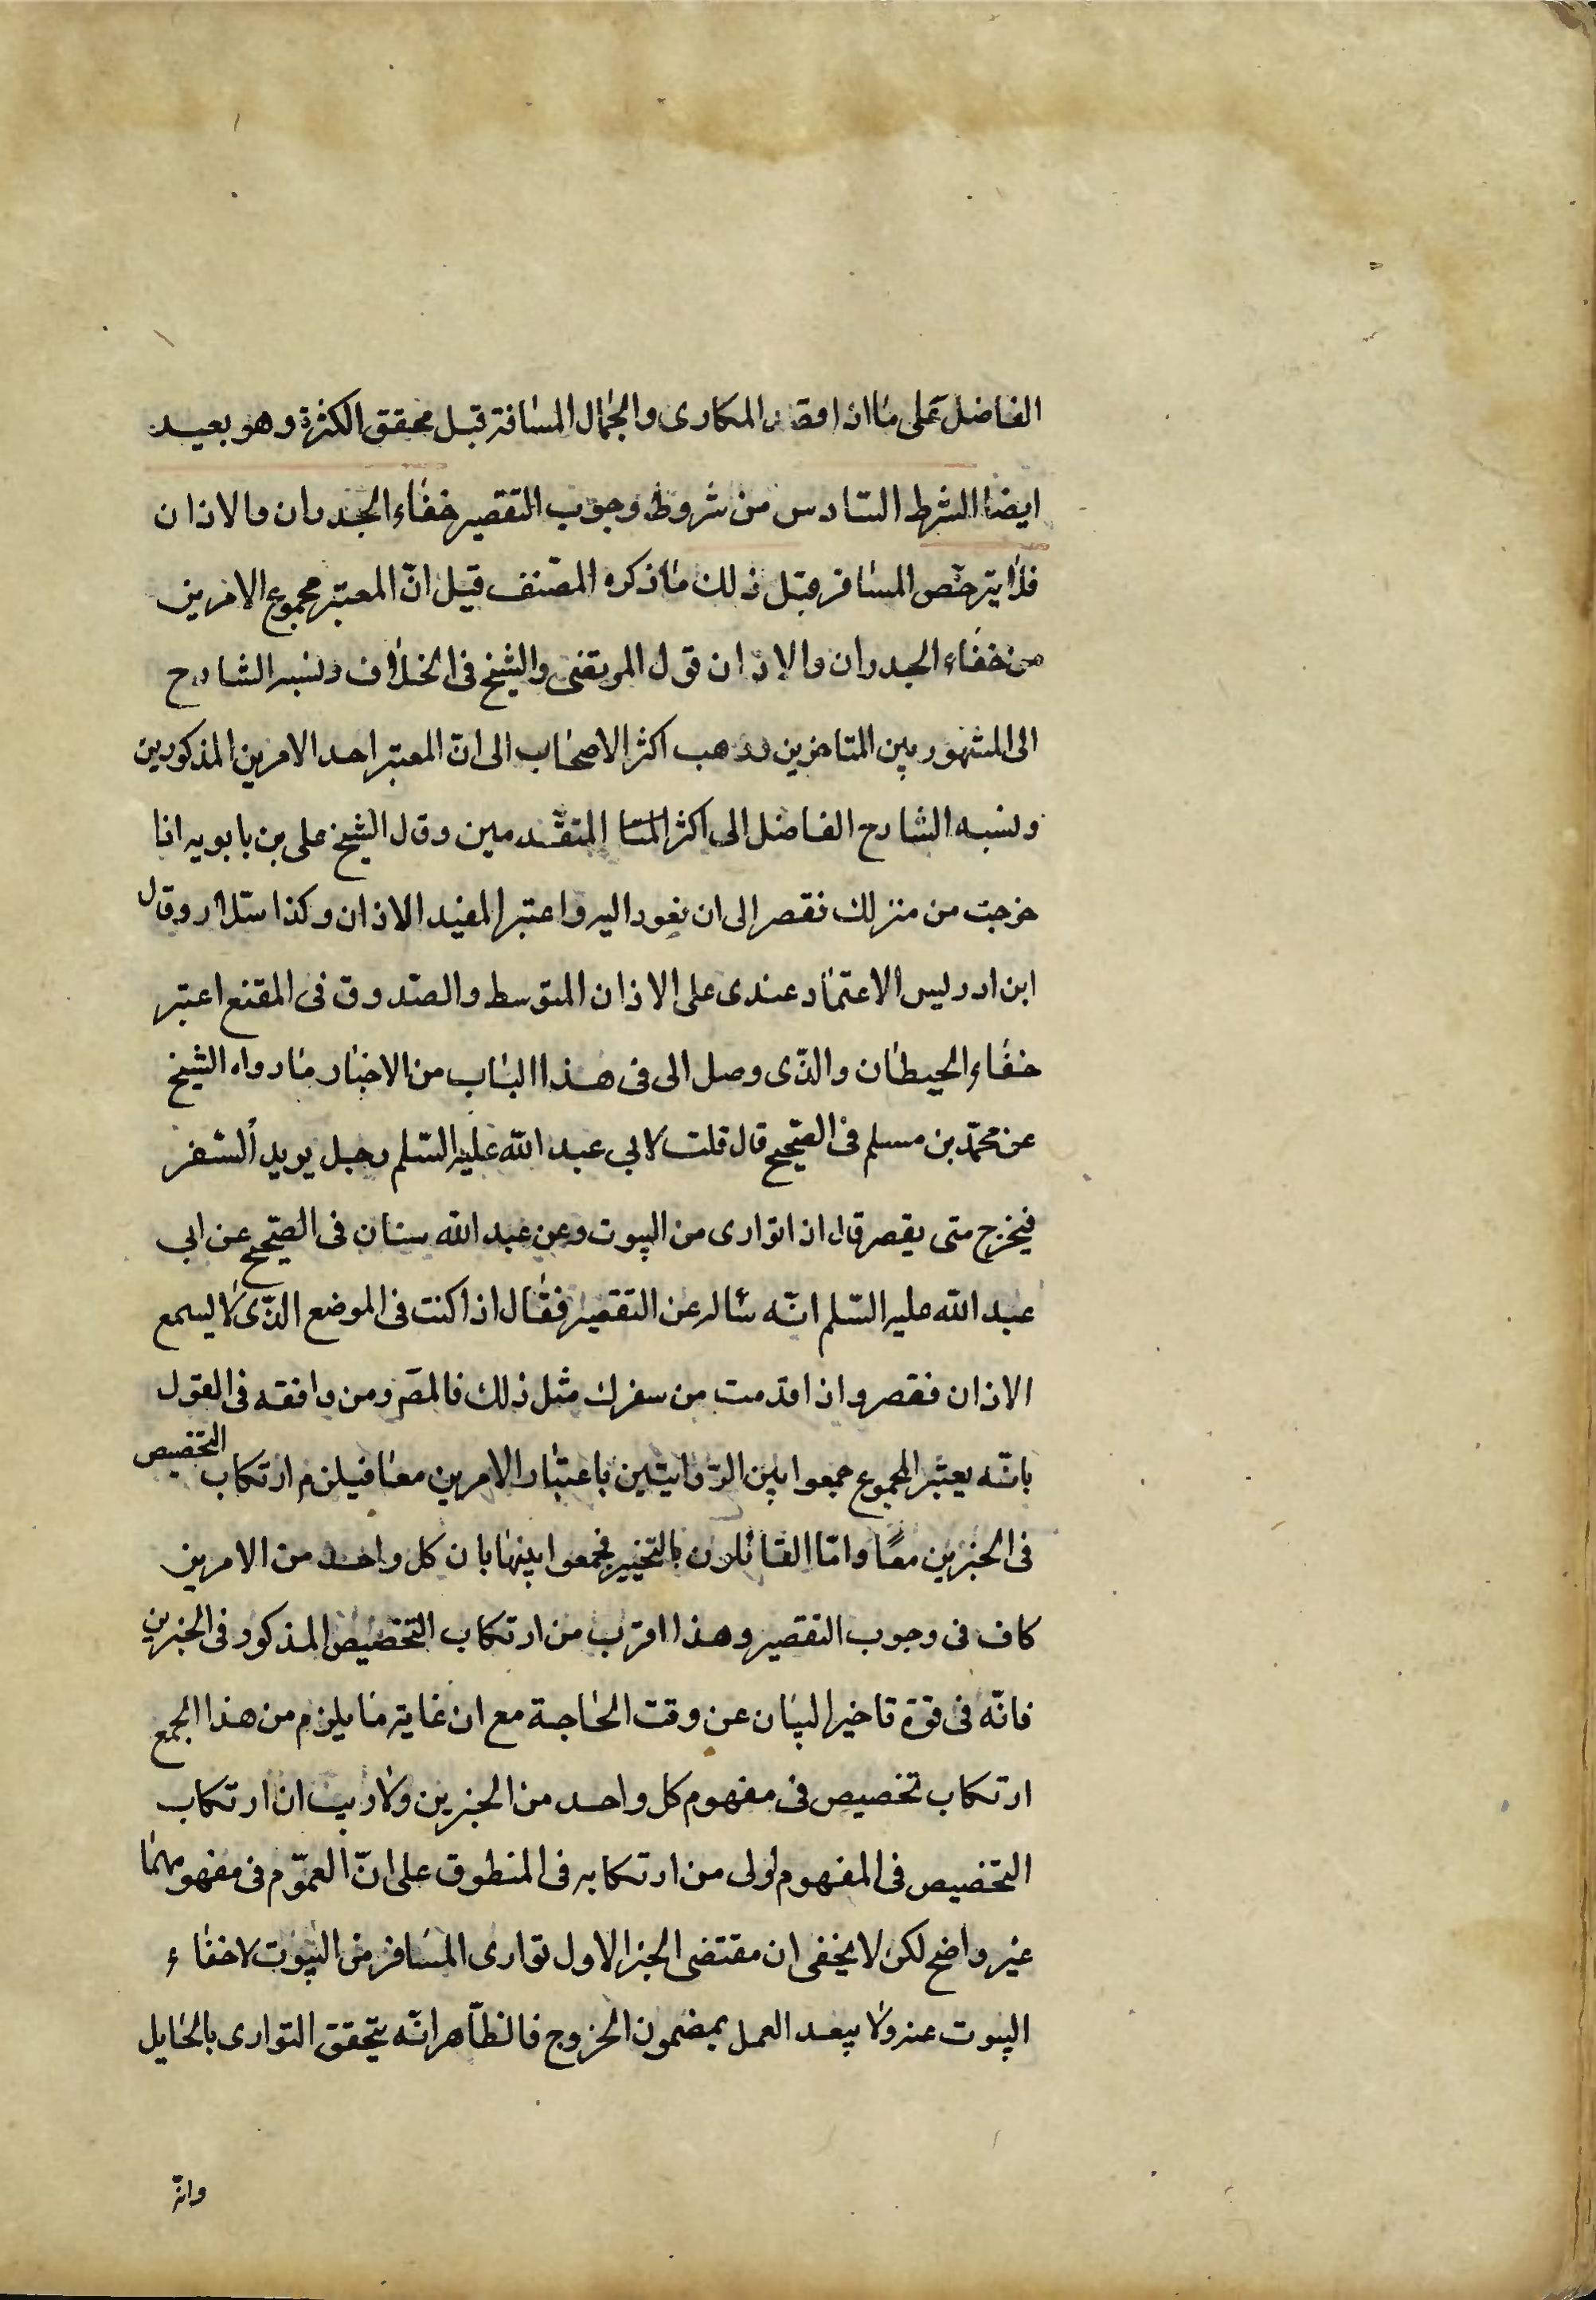 الفاضل على ما اذا قصد المكارى والجمال المسافة قبل تحقق الكثرة وهو بعيد
ايضا الشرط السادس من شروط وجوب التقصير خفاء الجدران والاذان
فلا يترخّص المسافر قبل ذلك ما ذكره المصّنف قيل انّ المعتبر مجموع الامرين
من خفاء الجدران والاذان قول المرتضى والشيخ فى الخلاف ونسبه الشارح
الى المشهور بين المتاخرين وذهب اكثر الاصحاب الى انّ المعتبر احد الامرين المذكورين
ونسبه الشارح الفاضل الى اكثر المتا المتقدمين وقال الشيخ على بن بابويه اذا
خرجت من منزلك فقصر الى ان تعود اليه واعتبر المفيد الاذان وكذا سلّار وقال
ابن ادريس الاعتماد عندى على الاذان المتوسط والصّدوق فى المقنع اعتبر
خفاء الحيطان والذّى وصل الى فى هذا الباب من الاخبار ما رواه الشيخ
عن محمّد بن مسلم فى الصّحيح قال قلت لابي عبد الله عليه السّلم رجل يريد السّفر
فيخرج متى يقصر قال اذا توارى من البيوت وعن عبد الله سنان فى الصّحيح عن ابي
عبد الله عليه السّلم انّه سأله عن التقصير فقال اذا كنت فى الموضع الذّى لا يسمع
الاذان فقصر واذا قدمت من سفرك مثل ذلك فالمصّ ومن وافقه فى القول
بانّه يعتبر المجموع جمعوا بين الرّوايتين باعتبار الامرين معا فيلزم ارتكاب التخصيص
فى الخبرين معًا وامّا القائلون بالتخيير فجمعوا بينهما بان كل واحد من الامرين
كاف فى وجوب التقصير وهذا اقرب من ارتكاب التخصيص المذكور فى الخبرين
فانّه فى قوّة تاخير البيان عن وقت الحاجة مع ان غاية ما يلزم من هذا الجمع
ارتكاب تخصيص فى مفهوم كل واحد من الخبرين ولا ريب ان ارتكاب
التخصيص فى المفهوم اولى من ارتكابه فى المنطوق على انّ العموم فى مفهومهما
غير واضح لكن لا يخفى ان مقتضى الخبر الاول توارى المسافر من البيوت لا خفاء
البيوت عنه ولا يبعد العمل بمضمون الخروج فالظّاهر انّه يتحقق التوارى بالحايل
وانّه